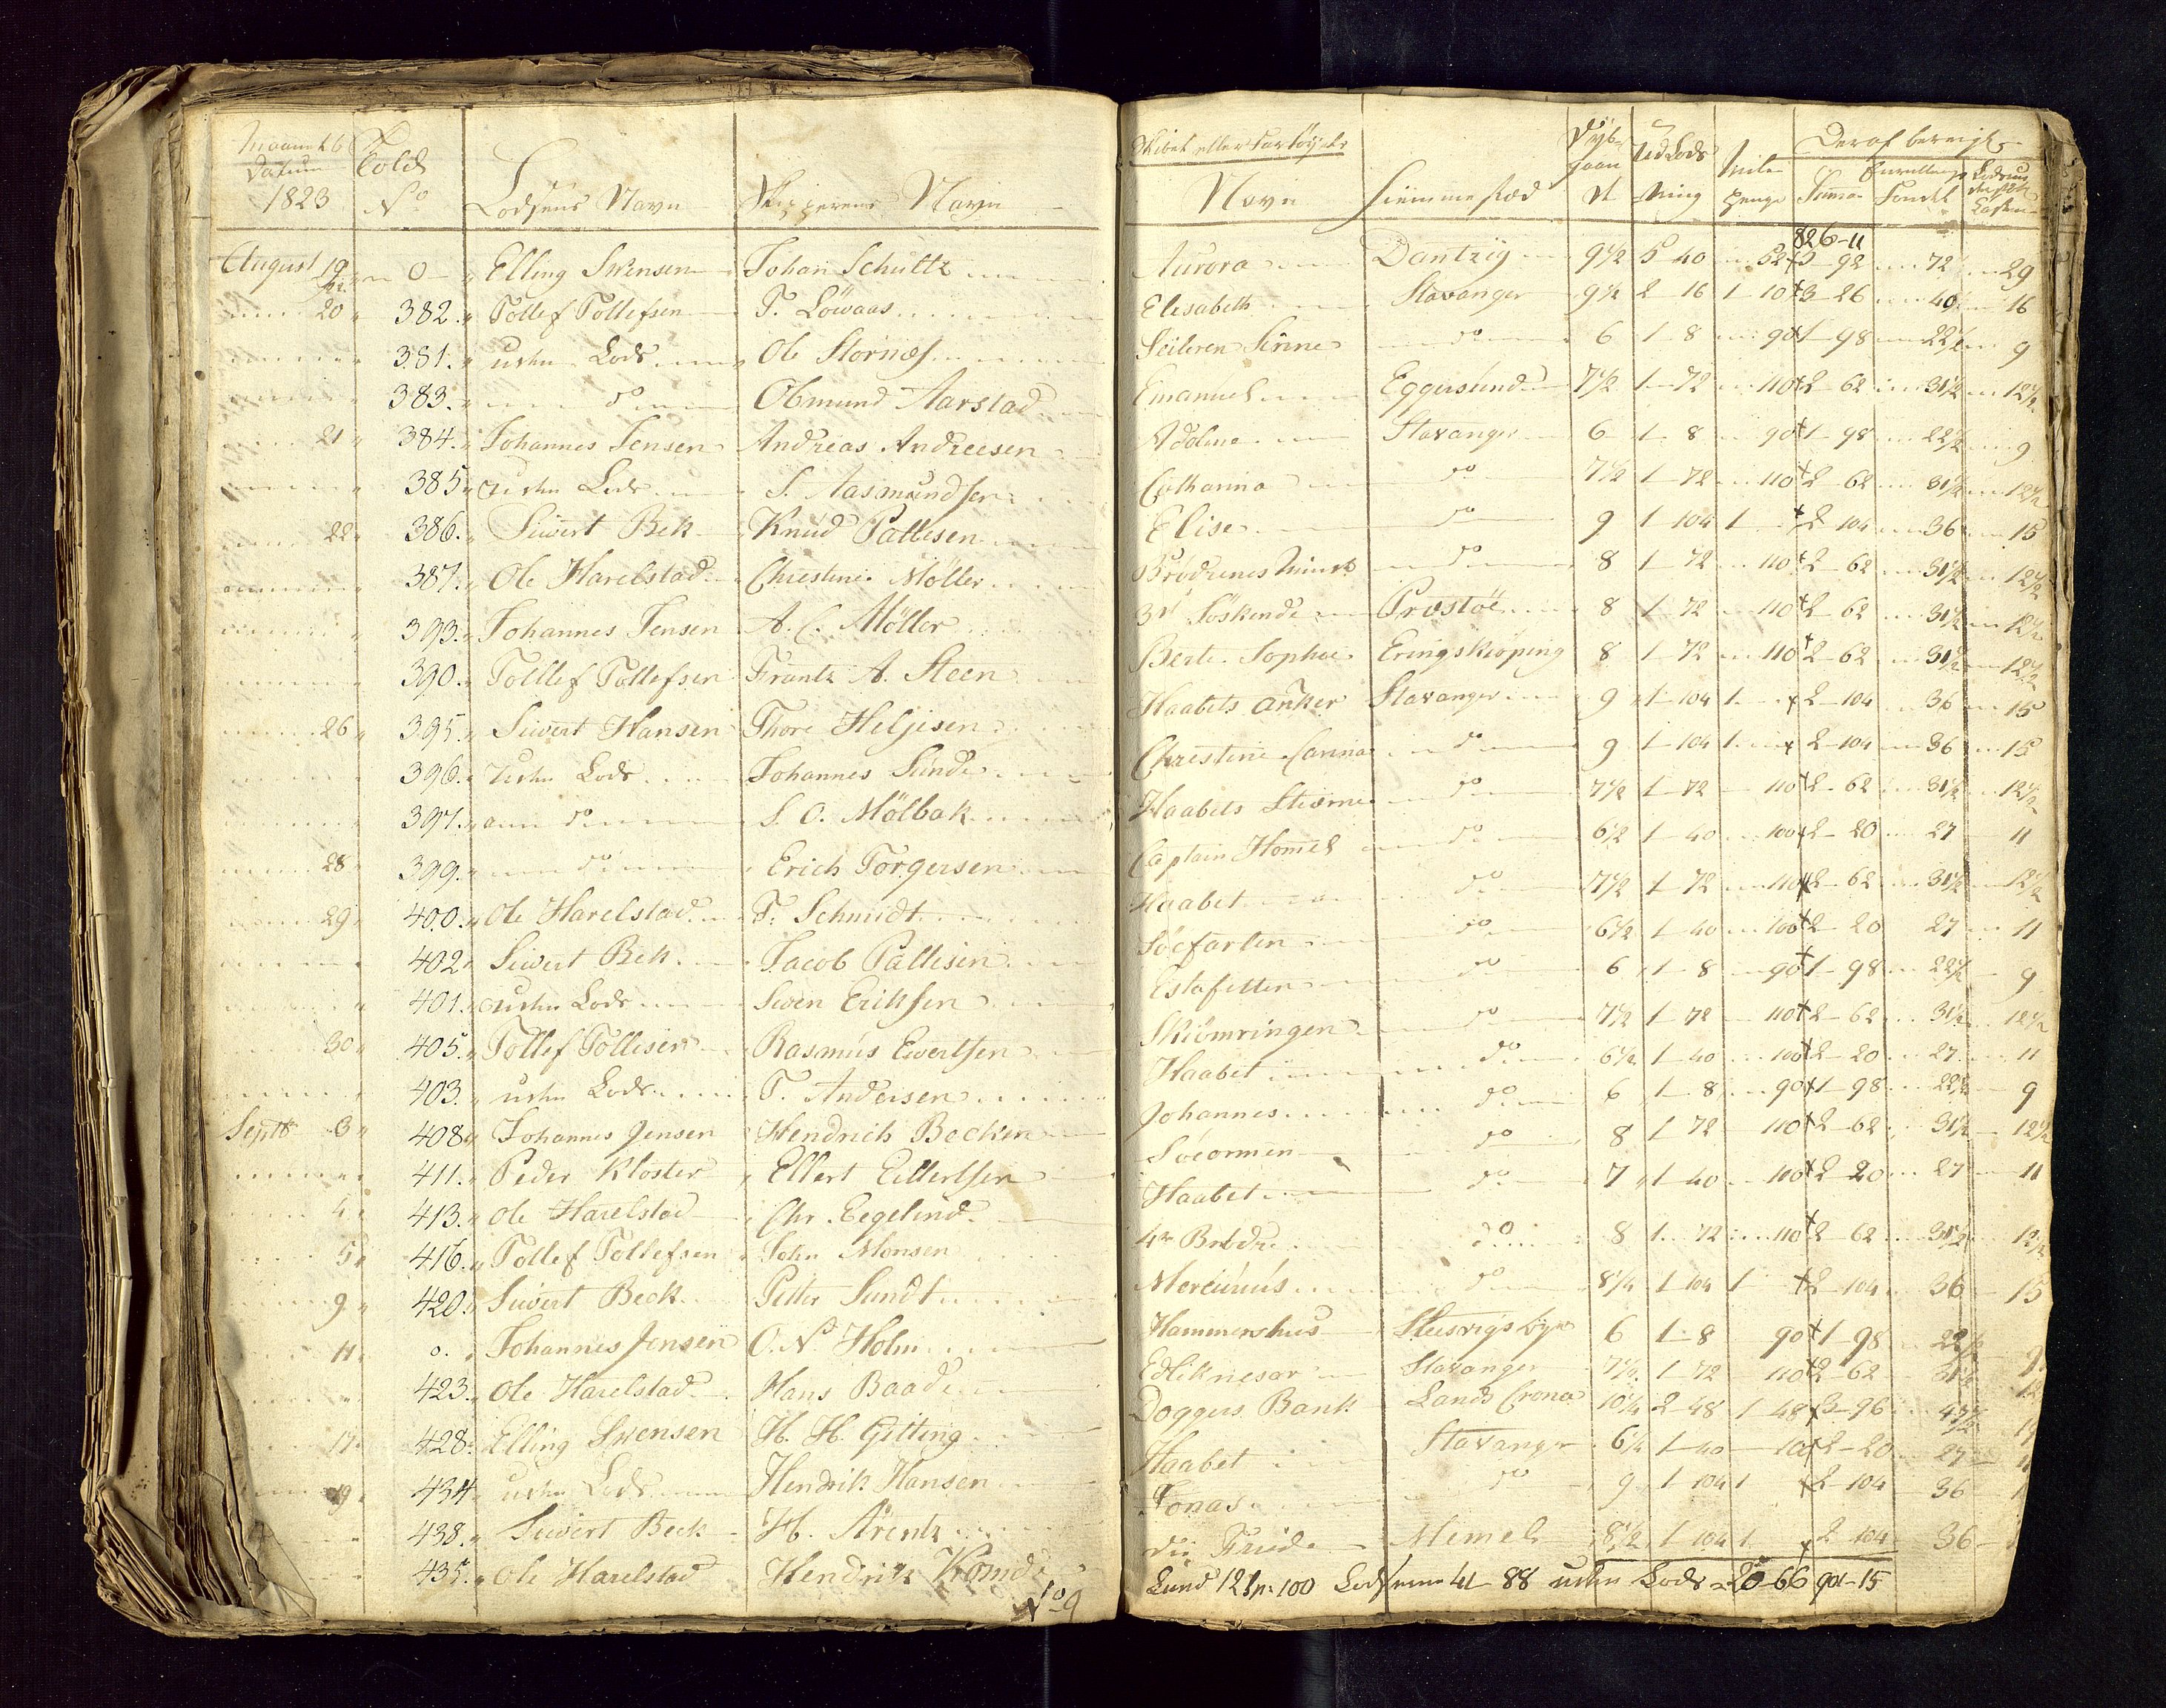 Datum Told
1823 No Lodsens Navn Skipperens Navn
August 19 0 Elling Swensen Johan Schultz
20 382. Tollef Tollefsen T. Löwaas
381. uden Lods Ole Stornæs
383. do Obmund Aarstad
21 384. Johannes Jensen Andreas Andreesen
385. uden Lods S. Aasmundsen
22 386. Siwert Bek Knud Pallesen
387. Ole Harelstad Christine Møller
393. Johannes Jensen A. C. Møller
390. Tollef Tollefsen Frantz A. Steen
26 395. Siwert Hansen Thore Heljesen
396. uden Lods Johannes Sunde
397. do S. O. Mölbak
28 399. do Erich Torgersen
29 400. Ole Harelstad T. Schmidt
402. Siwert Bek Jacob Pallesen
401. uden Lods Swen Eriksen
30 405. Tollef Tollesen Rasmus Ewertsen
403. uden Lods T. Andersen
Septb 3 408. Johannes Jensen Hendrich Becker
411. Peder Kloster Ellert Eilertsen
4 413. Ole Harelstad Chr. Eegelund
5 416. Tollef Tollefsen John Monsen
9 420. Siwert Beck Petter Sundt
11 0. Johannes Jensen O. N. Holm
423. Ole Harelstad Hans Baade
17 428. Elling Swensen H. H. Gitting
19 434 uden Lods Hendrik Hansen
438. Siwert Beck H. Arentz
435. Ole Harelstad Hendrik
No 9
Skibet eller Fartøyets
Navn Hiemmested Summa
826-11
Aurora Dantzig 9 1/2 5 40 52 5-92 72 29
Elisabeth Stavanger 9 1/2 2 16 1-10 3-26 40 16
Seileren do 6 1-8 90 1-98 22 1/2 9
Emanuel Eggersund 7 1/2 1-72 110 2-62 31 1/2 12 1/2
Adolina Stavanger 6 1-8 90 1-98 22 1/2 9
Catharina do 7 1/2 1-72 110 2-62 31 1/2 12 1/2
Elise do 9 1 104 1 2 104 36 15
Brødrenes Minde do 8 1-72 110 2-62 31 1/2 12 1/2
3de Söskende Præstöe 8 1-72 110 2-62 31 1/2 12 1/2
Berte Sophie Eringskiøping 8 1-72 110 2-62 31 1/2 12 1/2
Haabets Anker Stavanger 9 1-104 1 2-104 36 15
Christine Carina do 9 1-104 1 2-104 36 15
Haabets Stierne do 7 1/2 1-72 110 2-62 31 1/2 12 1/2
Captain Homel do 6 1/2 1-40 100 2-20 27 11
Haabet do 7 1/2 1-72 110 2-62 31 1/2 12 1/2
Söefarten do 6 1/2 1 40 100 2-20 27 11
Estafetten do 6 1-8 90 1-98 22 1/2 9
Skiömringen do 7 1/2 1-72 110 2-62 31 1/2 12 1/2
Haabet do 6 1/2 1-40 100 2-20 27 11
Johannes do 6 1-8 90 1-98 22 1/2 9
Söeormen do 8 1 72 110 2-62 31 1/2 12 1/2
Haabet do 7 1-40 100 2 20 27 11
4re Brødre do 8 1-72 110 2-62 31 1/2 12 1/2
Mercurius do 8 1/4 1 104 1 2-104 36 15
Hammershus 6 1-8 90 1-98 22 1/2 9
Stavanger 7 1/2 1-72 110 2-62 31 1/2 12
Doggers Bank Lands Crona 10 1/4 2-48 1 48 3-96 43 1/2
Haabet Stavanger 6 1/4 1-40 100 2-20 27
Jonas do 9 1 104 1 2 104 36
Die Friede Memel 8 1/2 1 104 1 2 104 36
100 41-88 uden Lods 20-66 901-15